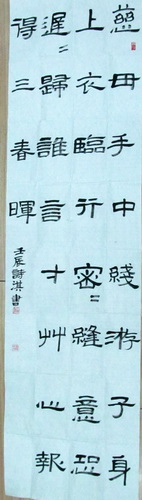 慈母手中綫游子身
上衣臨行密〻縫意恐
遲〻歸誰言寸艸心報
得三春暉
壬辰詩淇書